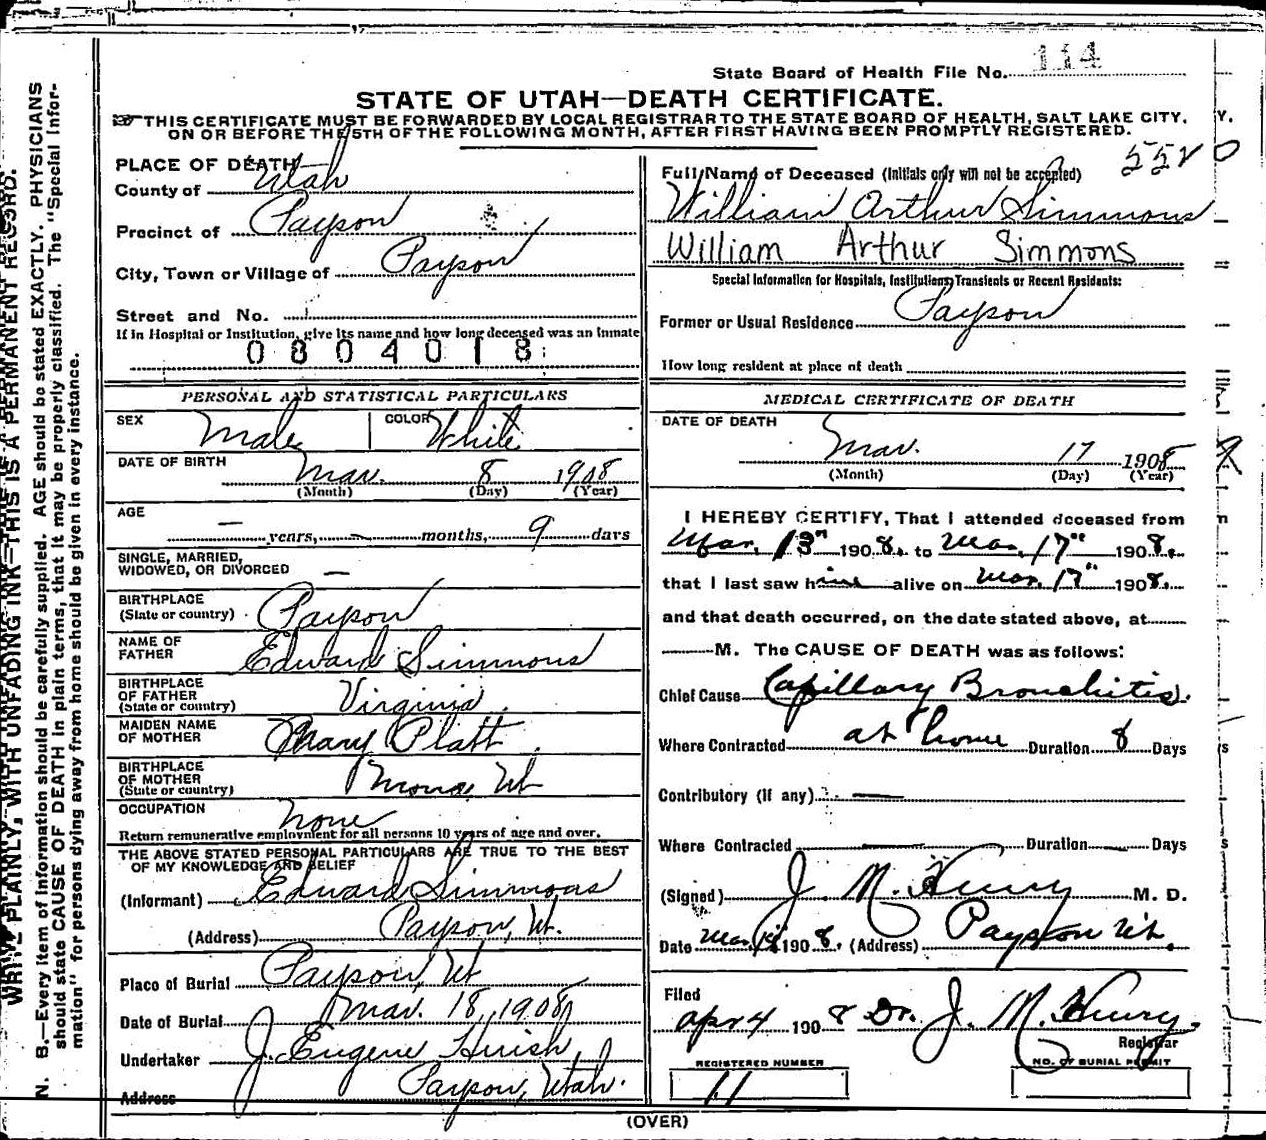 State Board of Health File No. 114
STATE OF UTAH—DEATH CERTIFICATE.
THIS CERTIFICATE MUST BE FORWARDED BY LOCAL REGISTRAR TO THE STATE BOARD OF HEALTH, SALT LAKE CITY,
ON OR BEFORE THE 5TH OF THE FOLLOWING MONTH, AFTER FIRST HAVING BEEN PROMPTLY REGISTERED.
WRITE PLAINLY, WITH UNFADING INK—THIS IS A PERMANENT RECORD.
N. B.—Every item of information should be carefully supplied. AGE should be stated EXACTLY. PHYSICIANS
should state CAUSE OF DEATH in plain terms, that it may be properly classified. The "Special Infor-
mation" for persons dying away from home should be given in every instance.
PLACE OF DEATH
County of Utah
Precinct of Payson
City, Town or Village of Payson
Street and No.
If in Hospital or Institution, give its name and how long deceased was an inmate
0804018
PERSONAL AND STATISTICAL PARTICULARS
SEX Male COLOR White
DATE OF BIRTH Mar. 8 1908
(Month) (Day) (Year)
AGE
— years, — months, 9 days
SINGLE, MARRIED,
WIDOWED, OR DIVORCED —
BIRTHPLACE
(State or country) Payson
NAME OF
FATHER Edward Simmons
BIRTHPLACE
OF FATHER
(State or country) Virginia
MAIDEN NAME
OF MOTHER Mary Platt
BIRTHPLACE
OF MOTHER
(State or country) Mona, Ut
OCCUPATION None
Return remunerative employment for all persons 10 years of age and over.
THE ABOVE STATED PERSONAL PARTICULARS ARE TRUE TO THE BEST
OF MY KNOWLEDGE AND BELIEF
(Informant) Edward Simmons
(Address) Payson, Ut.
Place of Burial Payson, Ut
Date of Burial Mar. 18, 1908
Undertaker J. Eugene
Address Payson, Utah.
5520
Full Name of Deceased (Initials only will not be accepted)
William Arthur Simmons
William Arthur Simmons
Special Information for Hospitals, Institutions, Transients or Recent Residents:
Former or Usual Residence Payson
How long resident at place of death
MEDICAL CERTIFICATE OF DEATH
DATE OF DEATH
Mar. 17 1908
(Month) (Day) (Year)
I HEREBY CERTIFY, That I attended deceased from
Mar. 13" 1908. to Mar. 17" 1908.
that I last saw him alive on Mar. 17" 1908.
and that death occurred, on the date stated above, at
M. The CAUSE OF DEATH was as follows:
Chief Cause Capillary Bronchitis.
Where Contracted at home Duration 8 Days
Contributory (if any) —
Where Contracted — Duration — Days
(Signed) J. M. Henry M. D.
Date Mar. 1908. (Address) Payson Ut.
Filed
Apr 4 1908 Dr. J. M. Henry
Registrar
REGISTERED NUMBER
11
NO. OF BURIAL PERMIT
(OVER)